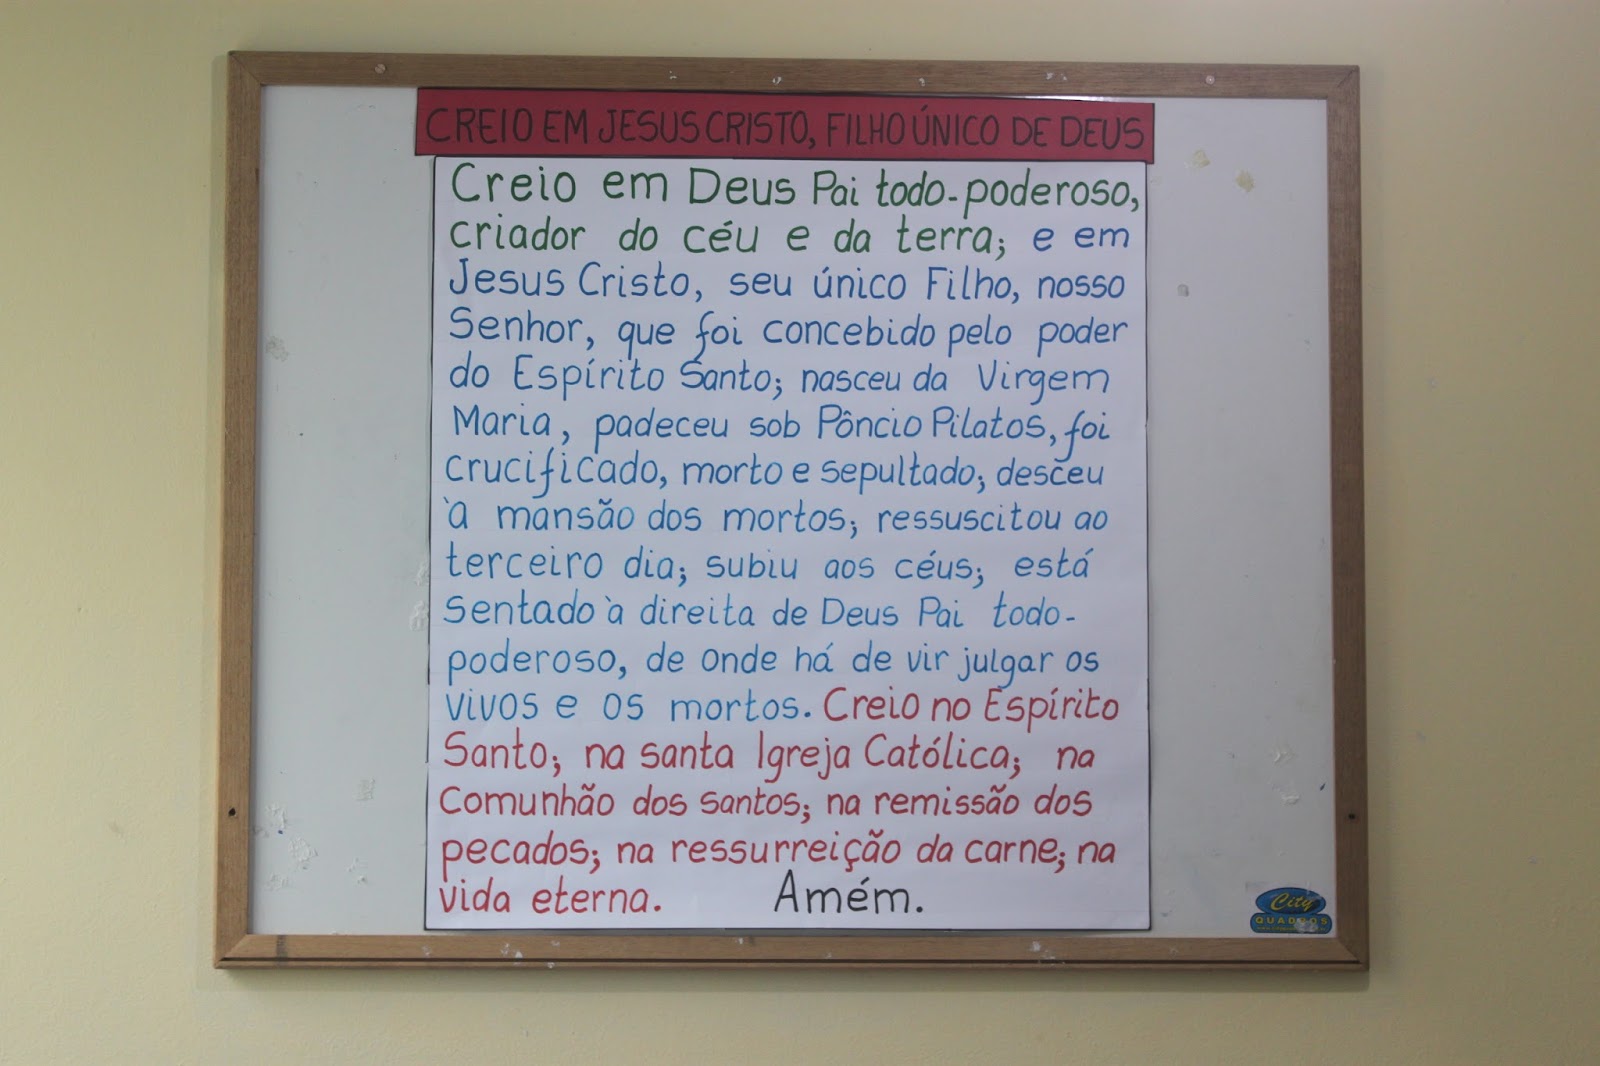 CREIO EM JESUS CRISTO, FILHO ÚNICO DE DEUS
Creio em Deus Pai todo-poderoso,
criador do céu e da terra; e em
Jesus Cristo, seu único Filho, nosso
Senhor, que foi concebido pelo poder
do Espírito Santo; nasceu da Virgem
Maria, padeceu sob Pôncio Pilatos, foi
crucificado, morto e sepultado; desceu
à mansão dos mortos; ressuscitou ao
terceiro dia; subiu aos céus; está
sentado à direita de Deus Pai todo-
poderoso, de onde há de vir julgar os
vivos e os mortos. Creio no Espírito
Santo; na santa Igreja Católica; na
comunhão dos santos; na remissão dos
pecados; na ressurreição da carne; na
vida eterna. Amém.
City
QUADROS